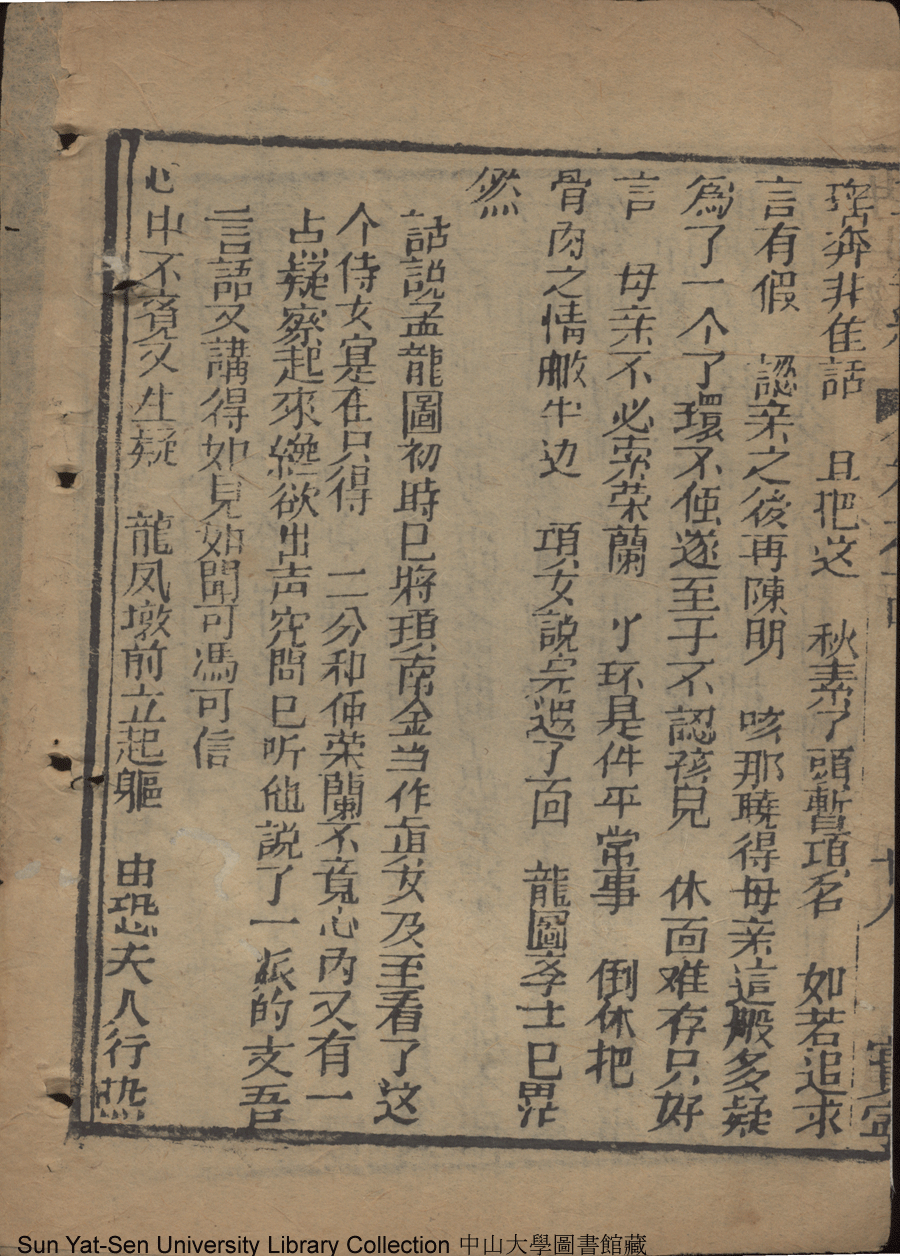 奔非隹話 且把这 秋素了頭暫項名 如若追求
言有假 認亲之後再陳明 咳那曉得母亲這般多疑
為了一个了環不便遂至于不認孩兒 休面难存只好
言 母亲不必索荣蘭 丫环是件平常事 倒休把
骨肉之情撇半边 項女説完退了面 龍圖孝士已
然
話説孟龍圖初時已將項南金当作女及至看了这
个侍女寔是在只得 二分和伸荣蘭不竟心内又有一
占疑察起來纔欲出声究問已听他説了一派的支吾
言語又講得如見如聞可馮可信
心中不覓又生疑 龍凤墩前立起軀 由恐夫人行
廿八
寳寕
Sun Yat-Sen University Library Collection 中山大學圖書館藏